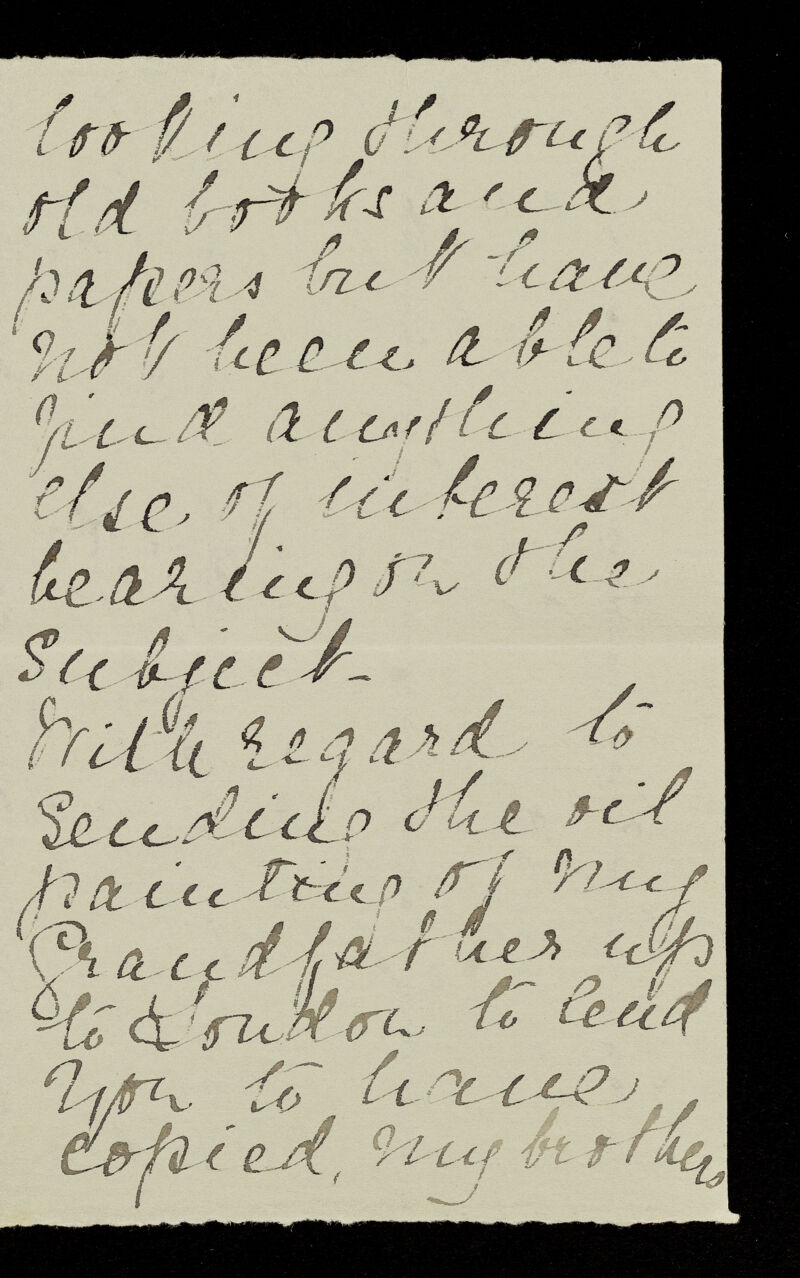 looking through
old books and
papers but have
not been able to
find anything
else of interest
bearing on the
Subject-
With regard to
Sending the oil
painting of my
Grandfather up
to London to lend
you to have
copied, my brothers